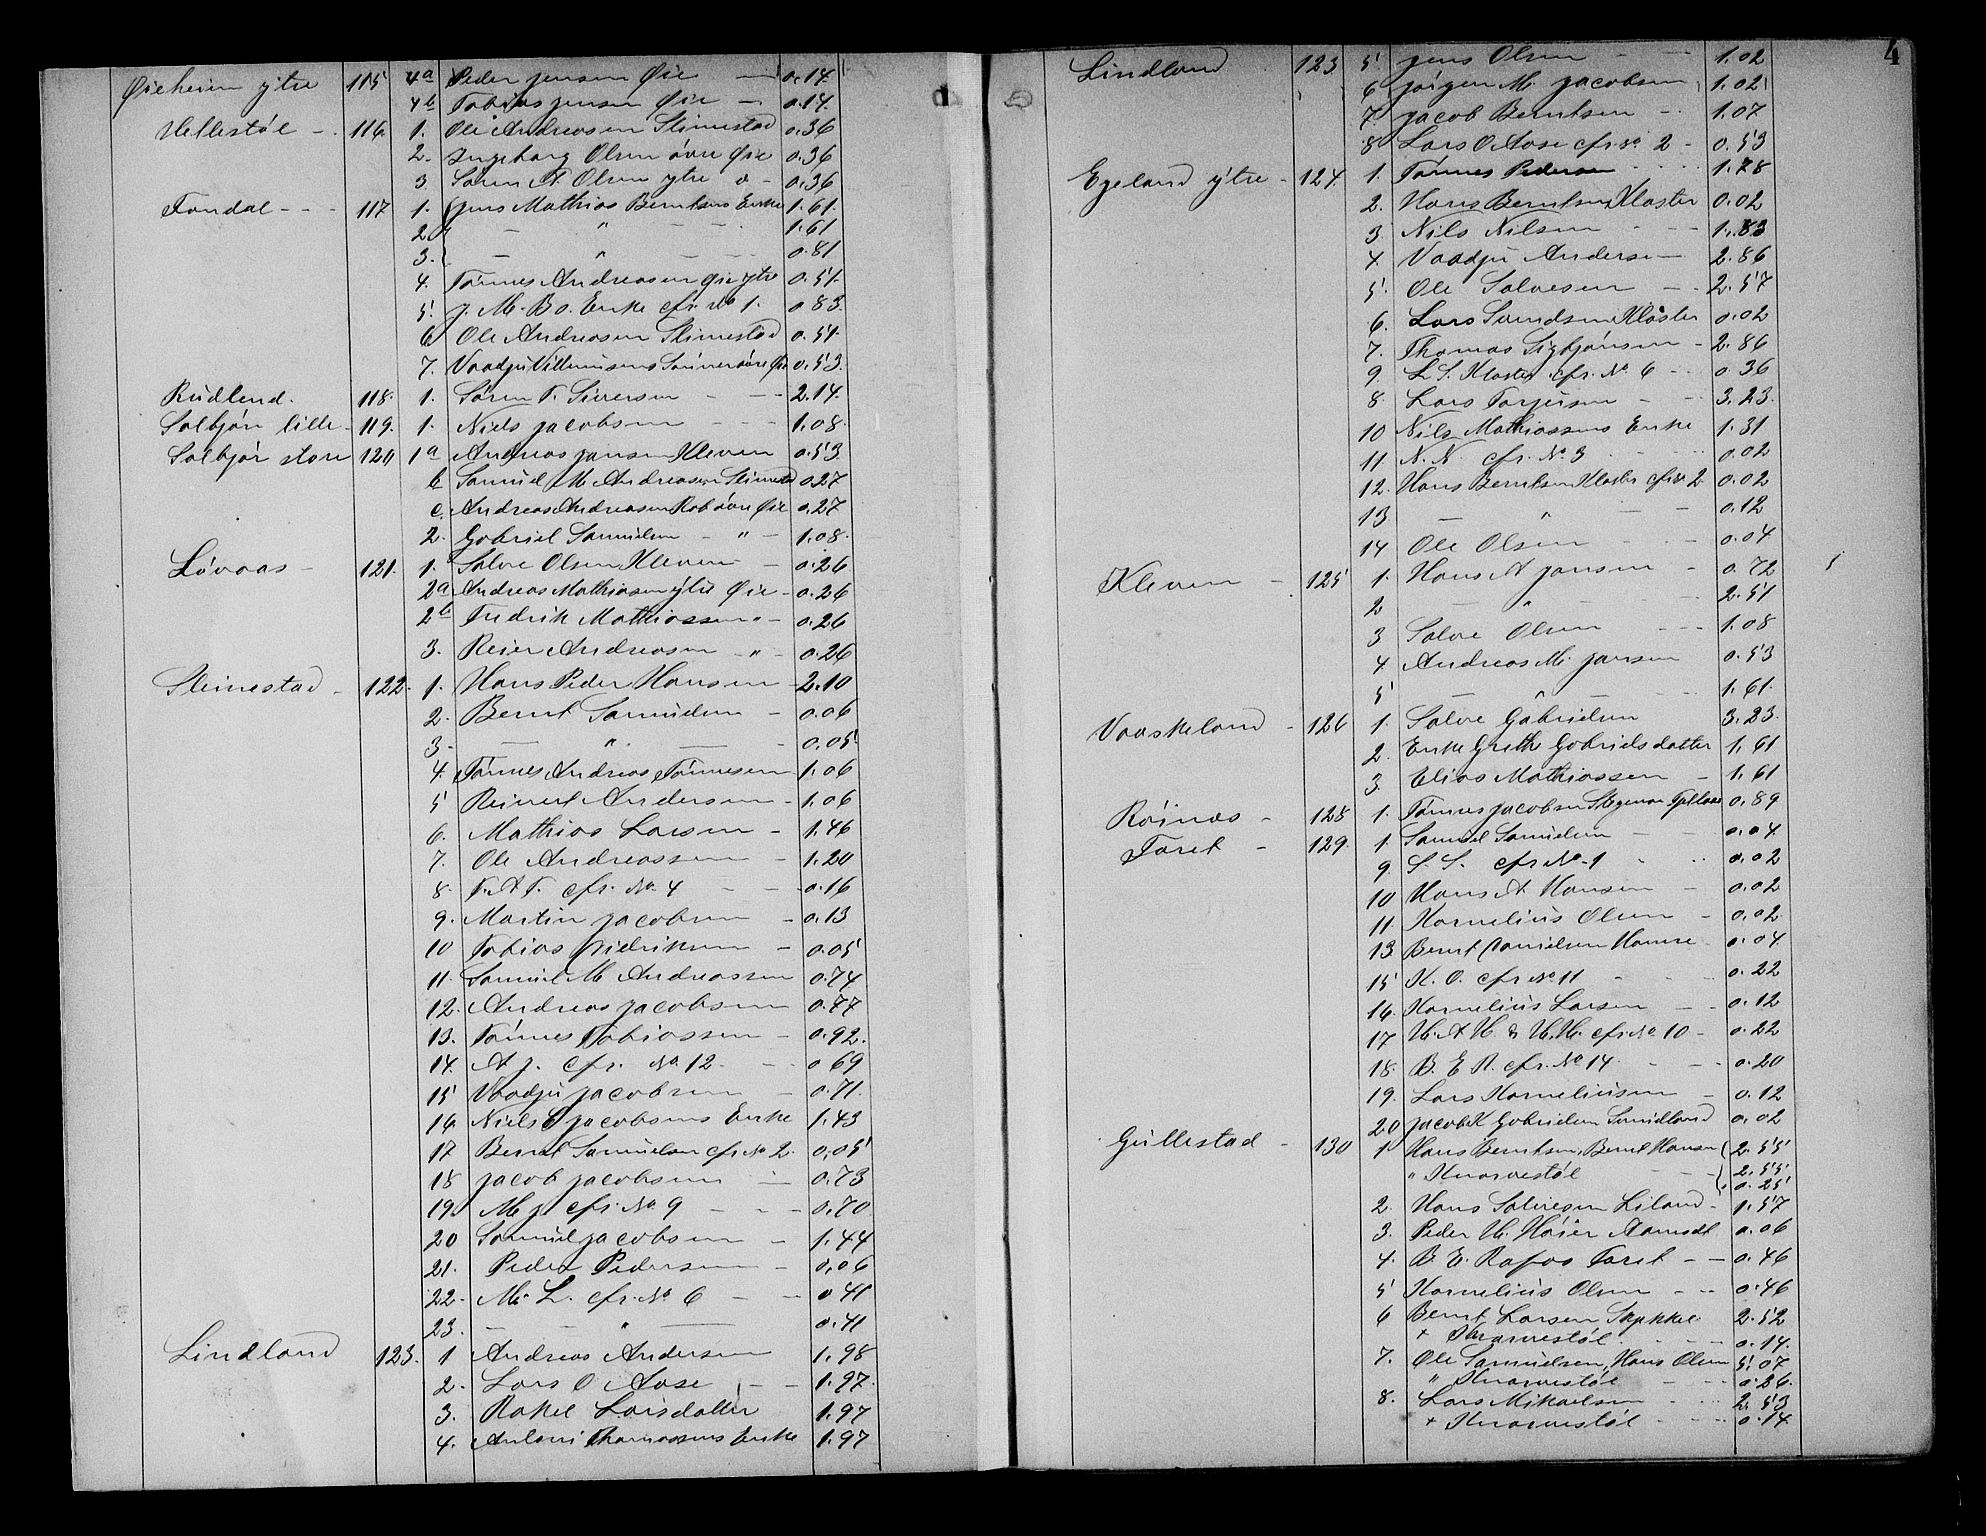 Øieheien ytre 115 4a Peder Jensen Øie — 0.14
4b Tobias Jensen Øie — 0.14
Hellestøl - 116 1. Ole Andreasen Stimestad 0.36
2. Ingeborg Olsen övre Øie 0.36
3 Sören A. Olsen ytre d - 0.36
Tondal - - - 117 1. Jens Mathias Berntsens Enke 1.61
2. — " — 1.61
3. — " — 0.81
4. Tönnes Andreasen Øie ytre 0.51
5. J. M. B s. Enke cfr. No 1. 0 83
6 Ole Andreasen Slimestad 0.51
7. Vaadju Villumsens Sönner övre Øie 0.53
Rudlend. 118. 1. Sören T. Siversen - - - 2.14
Solbjör lille - 119. 1. Niels Jacobsen - - - 1.08
Solbjör store 120 1a Andreas Jansen Kleven 0.53
b Samuel M Andreasen Slimestad 0.27
c. Andreas Andreasen Rob övre Øie 0.27
2. Gabriel Samuelsen - " - 1.08.
Lövaas - 121. 1. Salve Olsen Kleven - 0.26
2a Andreas Mathiasen ytre Øie - 0.26
2b Fredrik Mathiassen " - 0.26
3. Reier Andreasen - " - 0.26
Slimestad - 122. 1. Hans Peder Hansen - 2.10
2. Bernt Samuelsen - 0.06
3. — " — - 0.05
4. Tönnes Andreas Tönnesen 1.06
5 Reinert Andersen - 1.06
6. Mathias Larsen - 1.46
7. Ole Andreassen - 1.20
8. T. A. T. cfr. No 4 - - 0.16
9. Martin Jacobsen - 0.13
10 Tobias Fredriksen - 0.05
11. Samuel M Andreassen 0.74
12. Andreas Jacobsen 0.77
13. Tönnes Tobiassen - 0.92.
14. A J. cfr. No 12 - - 0 69
15 Vaadju Jacobsen - 0.71.
16 Niels Jacobsens Enke 1.43
17 Bernt Samuelsen cfr No 2. 0.05
18 Jacob Jacobsen — 0.73
19. M J. cfr. No 9 - - - 0.70
20 Samuel Jacobsen - 1.44
21. Peder Pedersen - 0.06
22. M. L. cfr. No 6 - - 0 41
23. — " — 0.41
Lindland 123. 1 Andreas Andersen 1.98
2. Lars O Aase - - 1.97.
3. Rakel Larsdatter 1.97
4. Antoni Thomassens Enke 1.97
4
Lindland 123 5 Jens Olsen - - 1.02
6 Jörgen M. Jacobsen 1.02
7 Jacob Berntsen - - 1.07
8 Lars O Aase cfr No 2 - 0.53
Egeland ytre - 124. 1. Tönnes Pedersen 1.78
2. Hans Berntsen Kloster 0.02
3 Nils Nilsen - - - 1.83
4. Vaadju Andersen - 2.86
5. Ole Salvesen - - 2.57
6. Lars Svendsen Kloster 0.02
7. Thomas Sigbjörnsen - 2.86
9. L S. Kloster cfr. No 6 - - 0 36
8. Lars Torjusen - - 3.23.
10 Nils Mathiassens Enke 1.31
11 N. N. cfr. No 3 - 0.02
12. Hans Berntsen Kloster cfr No 2 0.02
13 — " — 0.12
14 Ole Olsen - - 0.04
Kleven - 125 1. Hans A Jansen - 0.72
2 — " — 2.51
3 Salve Olsen - - - 1.08
4 Andreas M. Jansen 0.53
5 — " — 1.61.
Vaaskeland - 126 1. Salve Gabrielsen 3.23.
2. Enke Grethe Gabrielsdatter 1.61
3. Elias Mathiassen - 1.61
Röinaas - 128 1. Tönnes Jacobsen 0.89
Foret - 129 1. Samuel Samuelsen - 0.04.
9. S S. cfr No 1 - - 0.02
10 Hans A Hansen - 0.02
11. Kornelius Olsen - 0.02
13 Bernt Danielsen 0.04
15 K. O. cfr No 11 - 0.22
16. Kornelius Larsen - - 0.12
17 H. A H & H. H. cfr No 10 - 0.22
18. B. E R. cfr. No 14. - - 0.20
19. Lars Korneliusen - 0.12
20 Jacob K Gabrielsen 0.02
Gullestad - 130 1 Hans Berntsen, Bernt Hansen 2.55
" Knarvestöl - 2.55
0.25
2. Hans Salvesen Liland - 1.57
3. Peder H. Höier 0.06
4. B. E. Rafos Foret - - 0.46
5 Kornelius Olsen - - - 0.46
6 Bernt Larsen 2.52
+ Knarvestöl - - - 0.14.
7. Ole Samuelsen, Hans Olsen 5.07
" Knarvestöl - - - 0.26.
8. Lars Mikaelsen - - - 2.53
+ Knarvestöl - - - 0.14